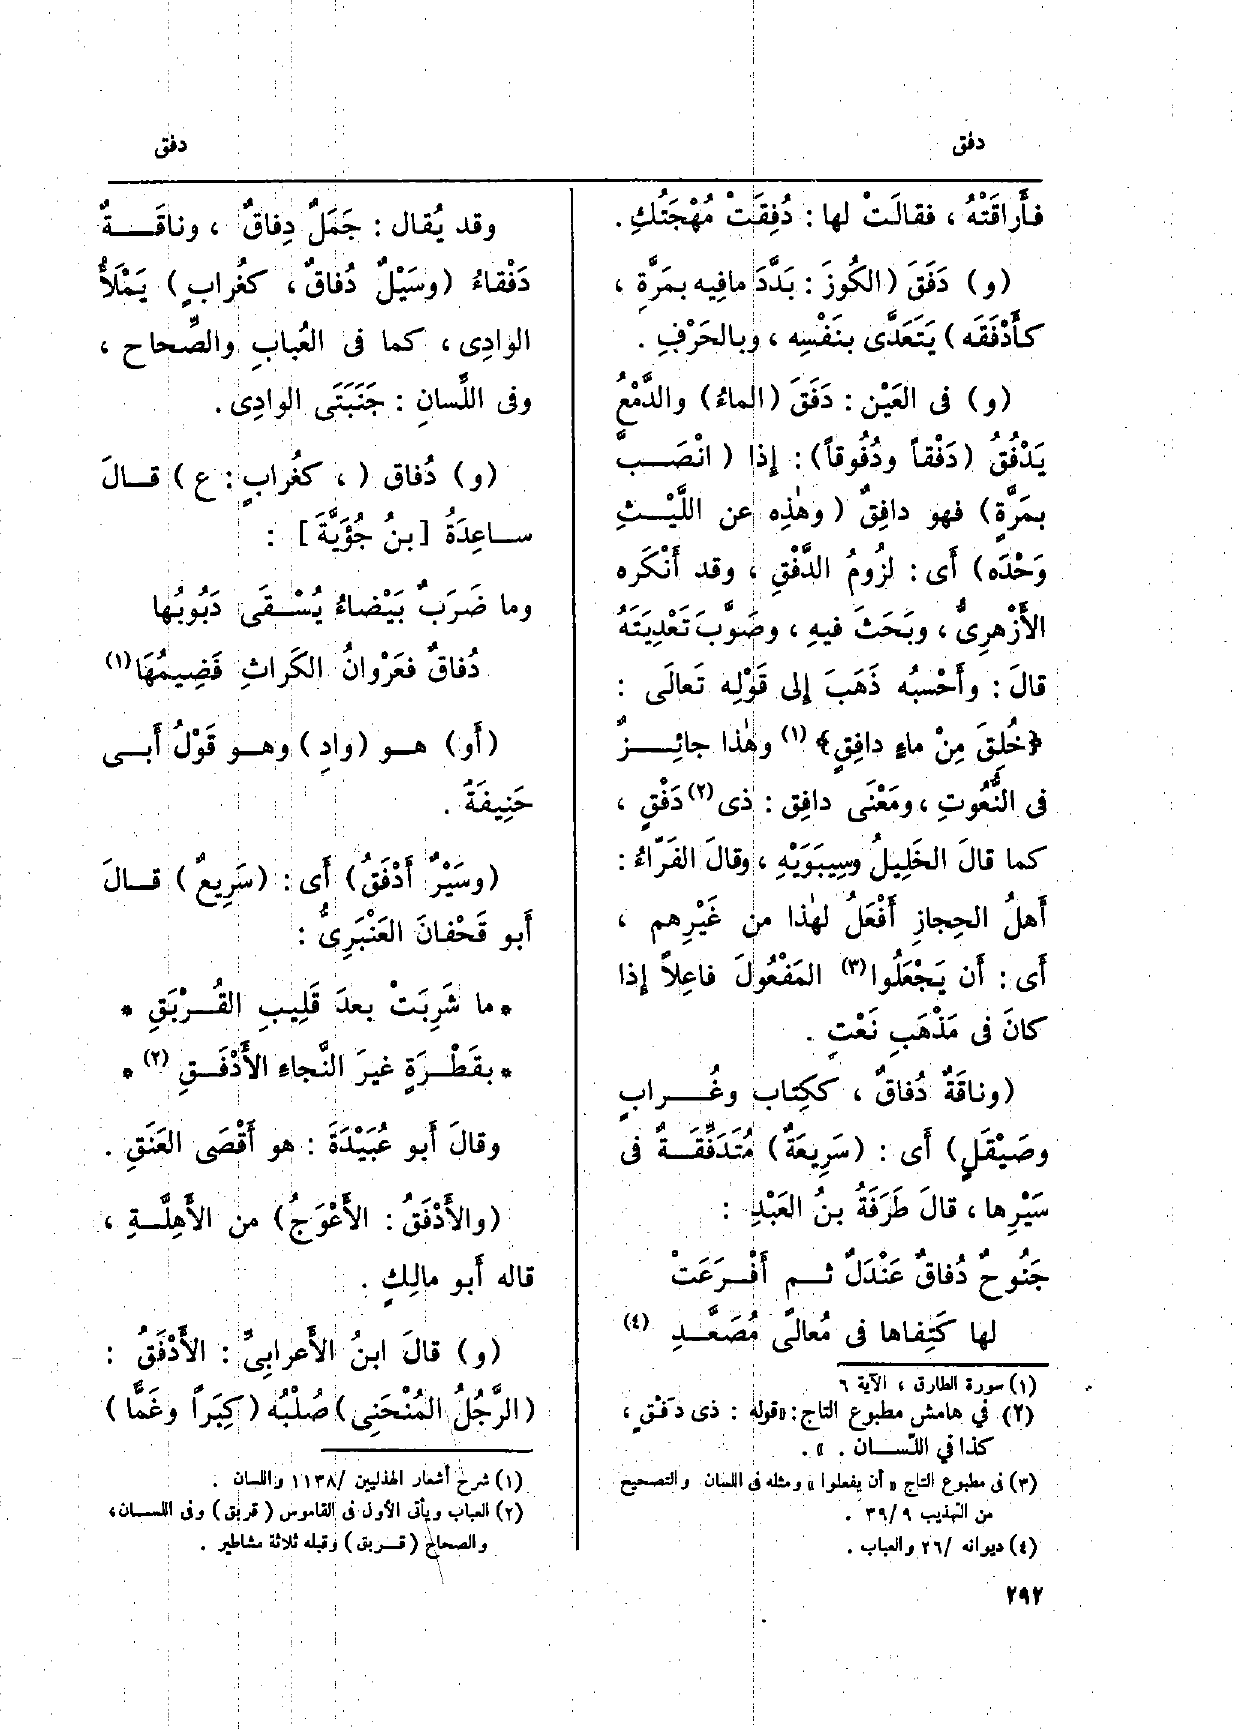 دفق
دفق
فأَراقَتْهُ ، فقالَتْ لها : دُفِقَتْ مُهْجَتُكِ .
(و) دَفَقَ (الكُوزَ : بَدَّدَ مافِيه بمَرَّةٍ ،
كأَدْفَقَه) يَتَعَدَّى بنَفْسِه ، وبالحَرْفِ .
(و) فى العَيْنِ : دَفَقَ (الماءُ) والدَّمْعُ
يَدْفُقُ (دَفْقاً ودُفُوقاً) : إِذا ( انْصَبَّ
بمَرَّةٍ) فهو دافِقٌ ( وهٰذِه عن اللَّيْثِ
وَحْدَه) أَى : لزُومُ الدَّفْقِ ، وقد أَنْكَره
الأَزْهرِىُّ ، وبَحَثَ فيهِ ، وصَوَّبَ تَعْدِيَتَهُ
قالَ : وأَحْسبُه ذَهَبَ إِلى قَوْلِه تَعالَى :
﴿خُلِقَ مِنْ ماءٍ دافِقٍ﴾ (١) وهٰذا جائِزٌ
فى النُّعُوتِ ، ومَعْنَى دافِق : ذى (٢) دَفْقٍ ،
كما قالَ الخَلِيلُ وسِيبَوَيْهِ ، وقالَ الفَرّاءُ :
أَهلُ الحِجازِ أَفْعَلُ لهٰذا من غَيْرِهم ،
أَى : أَن يَجْعَلُوا (٣) المَفْعُولَ فاعِلاً إِذا
كانَ فى مَذْهَبِ نَعْتٍ .
(وناقَةٌ دُفاقٌ ، ككِتاب وغُرابٍ
وصَيْقَلٍ) أَى : (سَرِيعَةٌ) مُتَدَفِّقَةٌ فى
سَيْرِها ، قالَ طَرَفَةُ بنُ العَبْدِ :
جَنُوحٌ دُفاقٌ عَنْدَلٌ ثم أَفْرَعَتْ
لها كَتِفاها فى مُعالًى مُصَعَّدِ (٤)
(١) سورة الطارق ، الآية ٦
(٢) في هامش مطبوع التاج : «قوله : ذى دَفْقٍ ،
كذا في اللّسان . » .
(٣) فى مطبوع التاج « أن يفعلوا » ومثله فى اللسان والتصحيح
من التهذيب ٣٩/٩ .
(٤) ديوانه /٢٦ والعباب .
٢٩٢
وقد يُقال : جَمَلٌ دِفاقٌ ، وناقَةٌ
دَفْقاءُ (وسَيْلٌ دُفاقٌ ، كغُرابٍ) يَمْلَأُ
الوادِى ، كما فى العُبابِ والصِّحاح ،
وفى اللِّسانِ : جَنَبَتَى الوادِى .
(و) دُفاق ( ، كغُرابٍ : ع ) قالَ
ساعِدَةُ [بنُ جُؤَيَّةَ] :
وما ضَرَبٌ بَيْضاءُ يُسْقَى دَبُوبُها
دُفاقٌ فعَرْوانُ الكَراثِ فَضِيمُهَا (١)
(أَو) هو (وادٍ) وهو قَوْلُ أَبى
حَنِيفَةَ .
(وسَيْرٌ أَدْفَقُ) أَى : (سَرِيعٌ) قالَ
أَبو قَحْفانَ العَنْبَرِىُّ :
* ما شَرِبَتْ بعدَ قَلِيبِ القُرْبَقِ *
* بقَطْرَةٍ غيرَ النَّجاءِ الأَدْفَقِ (٢) *
وقالَ أَبو عُبَيْدَةَ : هو أَقْصَى العَنَقِ .
(والأَدْفَقُ : الأَعْوَجُ) من الأَهِلَّةِ ،
قاله أَبو مالِكٍ .
(و) قالَ ابنُ الأَعرابِىِّ : الأَدْفَقُ :
(الرَّجُلُ المُنْحَنِى) صُلْبُه (كِبَراً وغَمًّا)
(١) شرح أشعار الهذليين /١١٣٨ واللسان .
(٢) العباب ويأتى الأول فى القاموس ( قربق ) وفى اللسان ،
والصحاح ( قربق ) وقبله ثلاثة مشاطير .